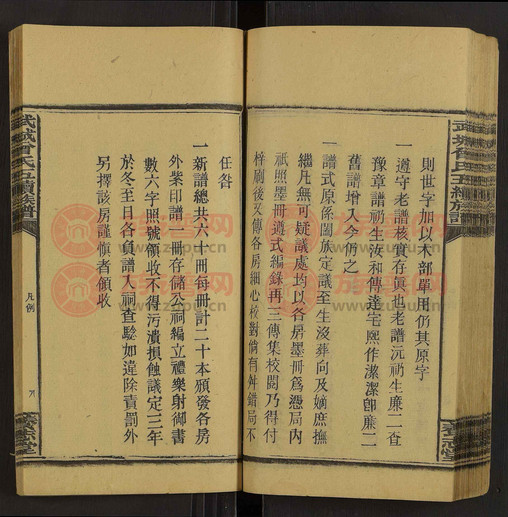 武城曾氏五續族譜
則世字加以木部單用仍其原字
一遵守老譜核實存眞也老譜沅祤生廉二查
豫章譜祤生汝和傳逵宅熙作潔潔卽廉二
舊譜增入今仍之
一譜式原係闔族定議至生沒葬向及嫡庶撫
繼凡無可疑議處均以各房墨冊爲憑局內
祇照墨冊遵式編錄再三傳集校閱乃得付
梓刷後又傳各房細心校對倘有舛錯局不
任咎
一新譜總共六十冊每冊計二十本頒發各房
外紫印譜一冊存儲公祠編立禮樂射御書
數六字照號領收不得污潰損蝕議定三年
於冬至日各負譜入祠查騐如違除責罰外
另擇該房謹慎者領收
武城曾氏五續族譜
凡例